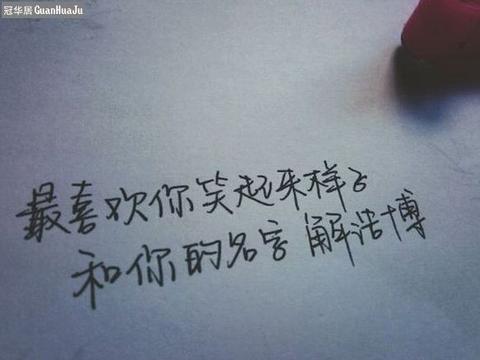 冠华居GuanHuaJu
最喜欢你笑起来样子
和你的名字 解浩博